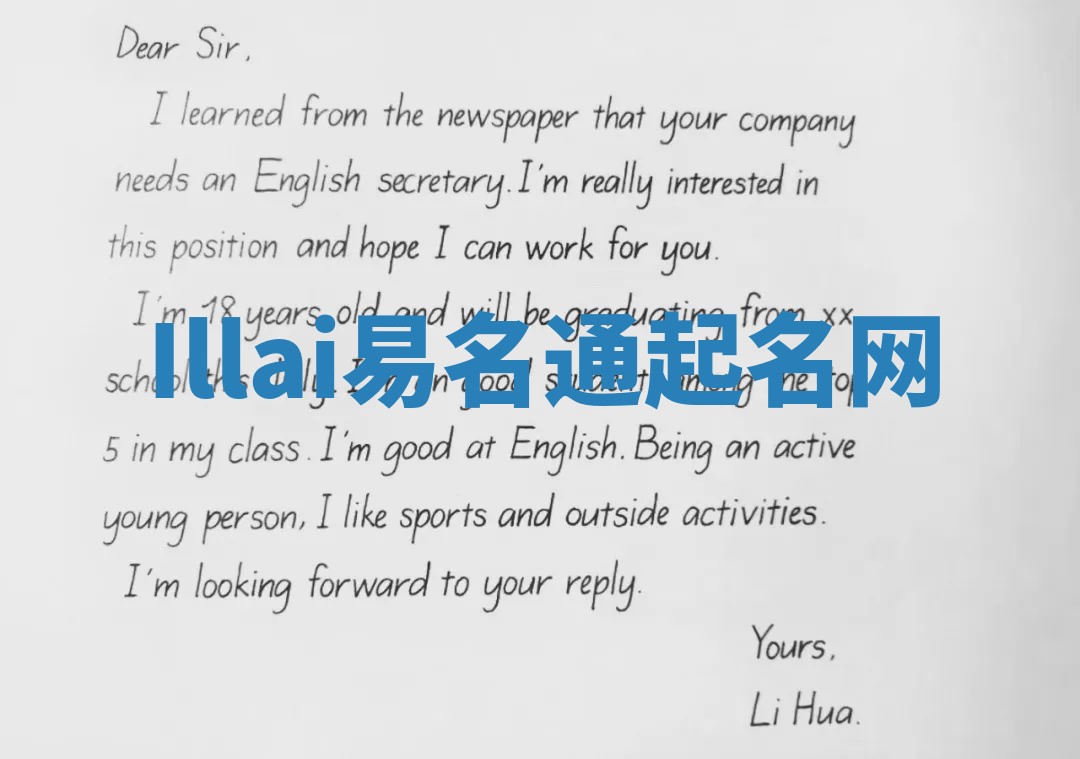 Dear Sir,
I learned from the newspaper that your company
needs an English secretary. I'm really interested in
this position and hope I can work for you.
I'm 18 years old and will be graduating from xx
Illai易名通起名网
school this July. I'm an good student among the top
5 in my class. I'm good at English. Being an active
young person, I like sports and outside activities.
I'm looking forward to your reply.
Yours,
Li Hua.